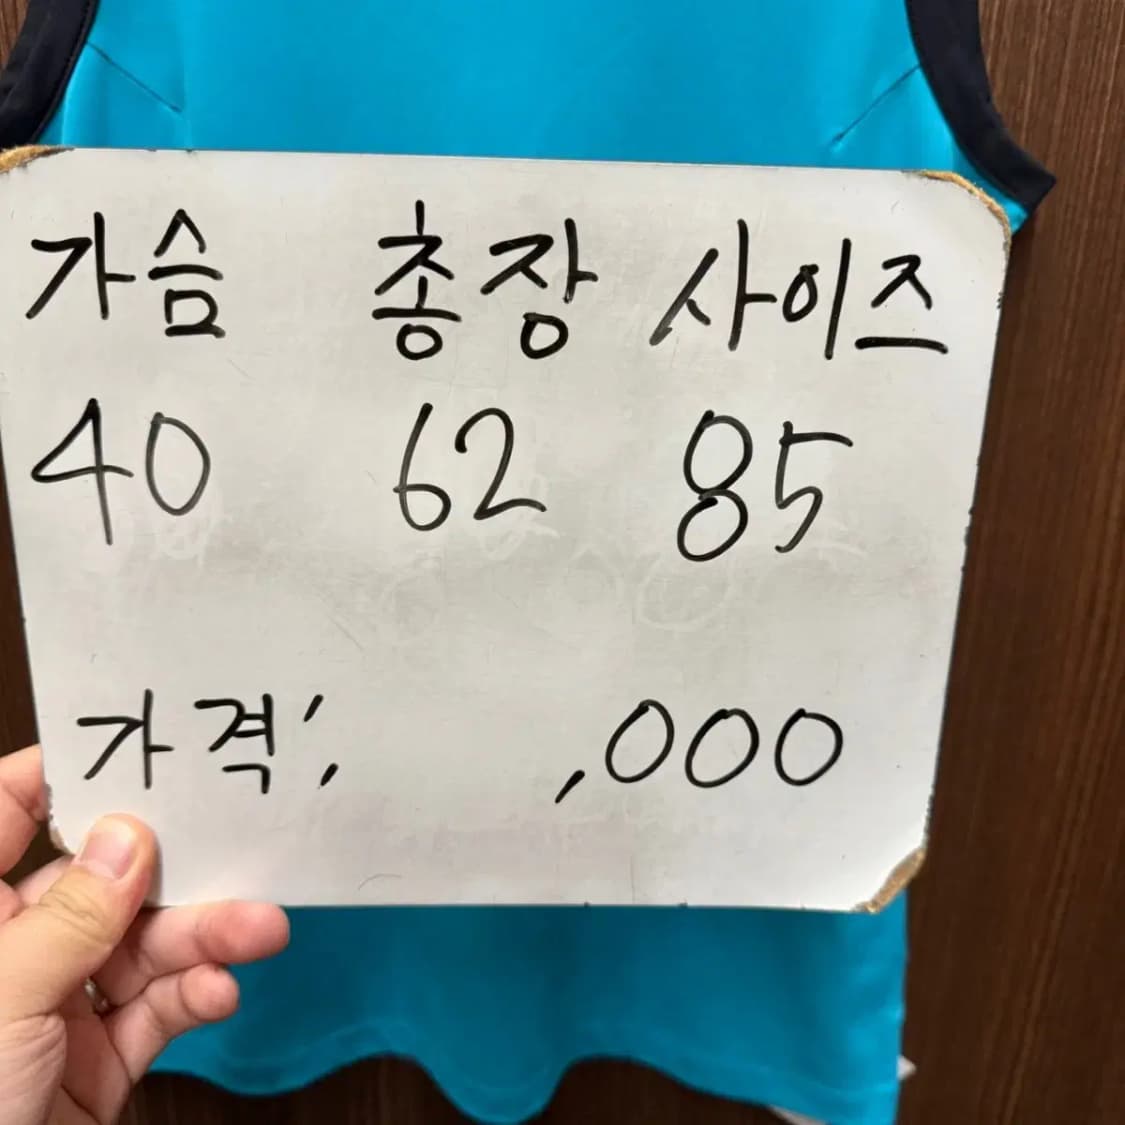 가슴 총장 사이즈
40 62 85
가격: ,000